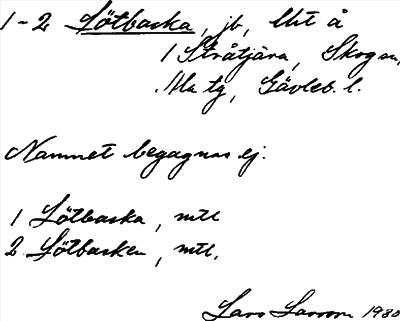 1-2 Lötbacka, jb, Utt å
1 Stråtjära, Skogen,
Ma tg, Gävleb. l.
Namnet begagnas ej.
1 Lötbacka, mtl
2 Lötbacken, mtl,
Lars Larsson 1980